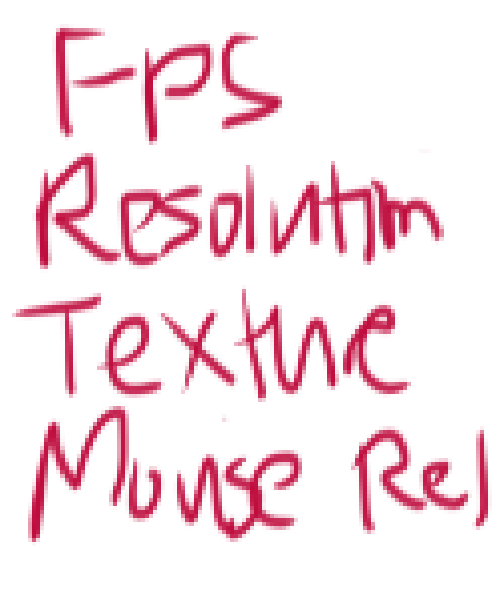 Fps
Resolution
Texture
Mouse Rel